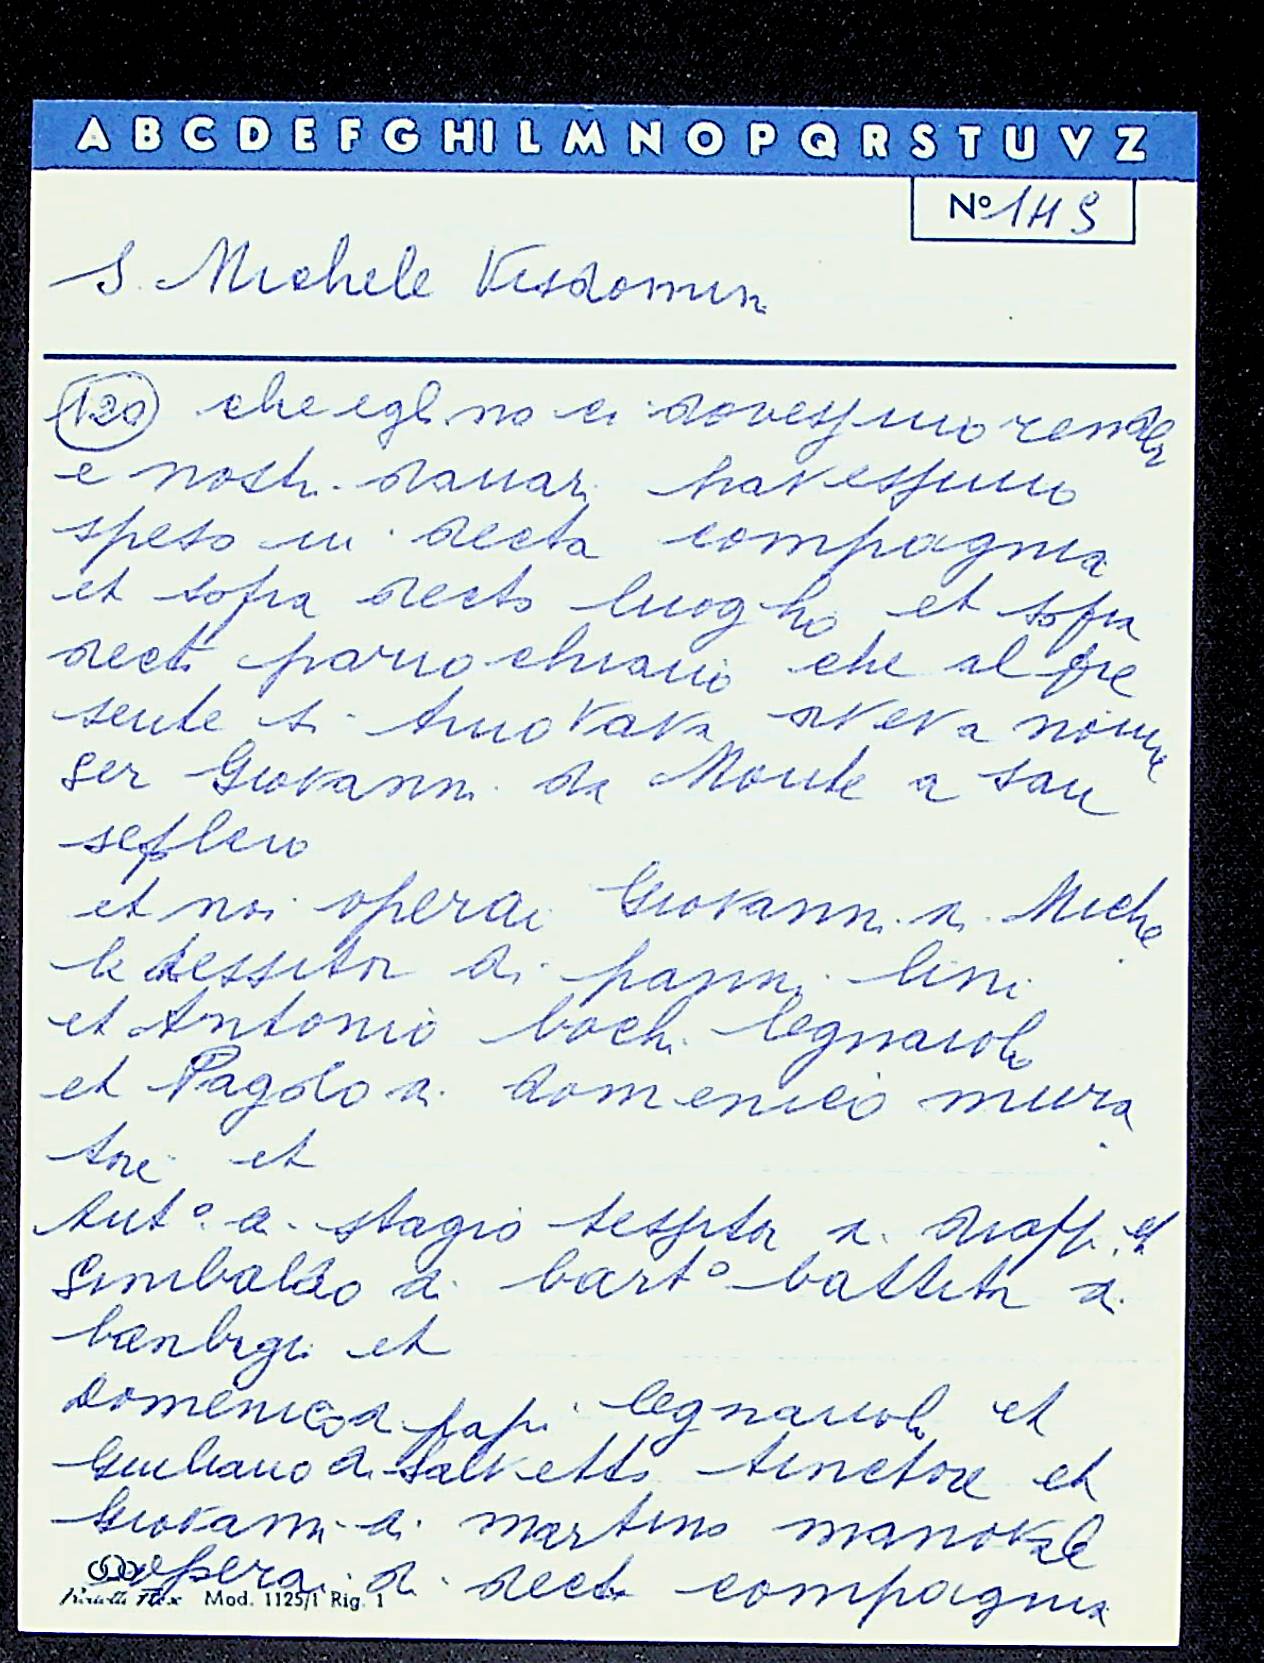 A B C D E F G H I L M N O P Q R S T U V Z
Nº
S. Michele Visdomin
120 che egl.no ci dovessino render
e nostri danari havessimo
speso in decta compagnia
et sopra decto luogho et sopra
decti parrochiano che al pre
sente si truovava aveva nome
Ser Giovanni da Monte a San
sepl
et noi operai Giovanni di Miche
le tessitor di panni lini
et Antonio bochi legnaiolo
et Pagolo di domenico mura
tore et
Antº di stagio tessitor di drappi et
Sinibaldo di bartº battitor di
et
Domenico di papi legnaiolo et
Giuliano di Salvetto tinctore et
Giovanni di martino manovale
operai di decta compagnia
Mod. 1125/1 Rig. 1